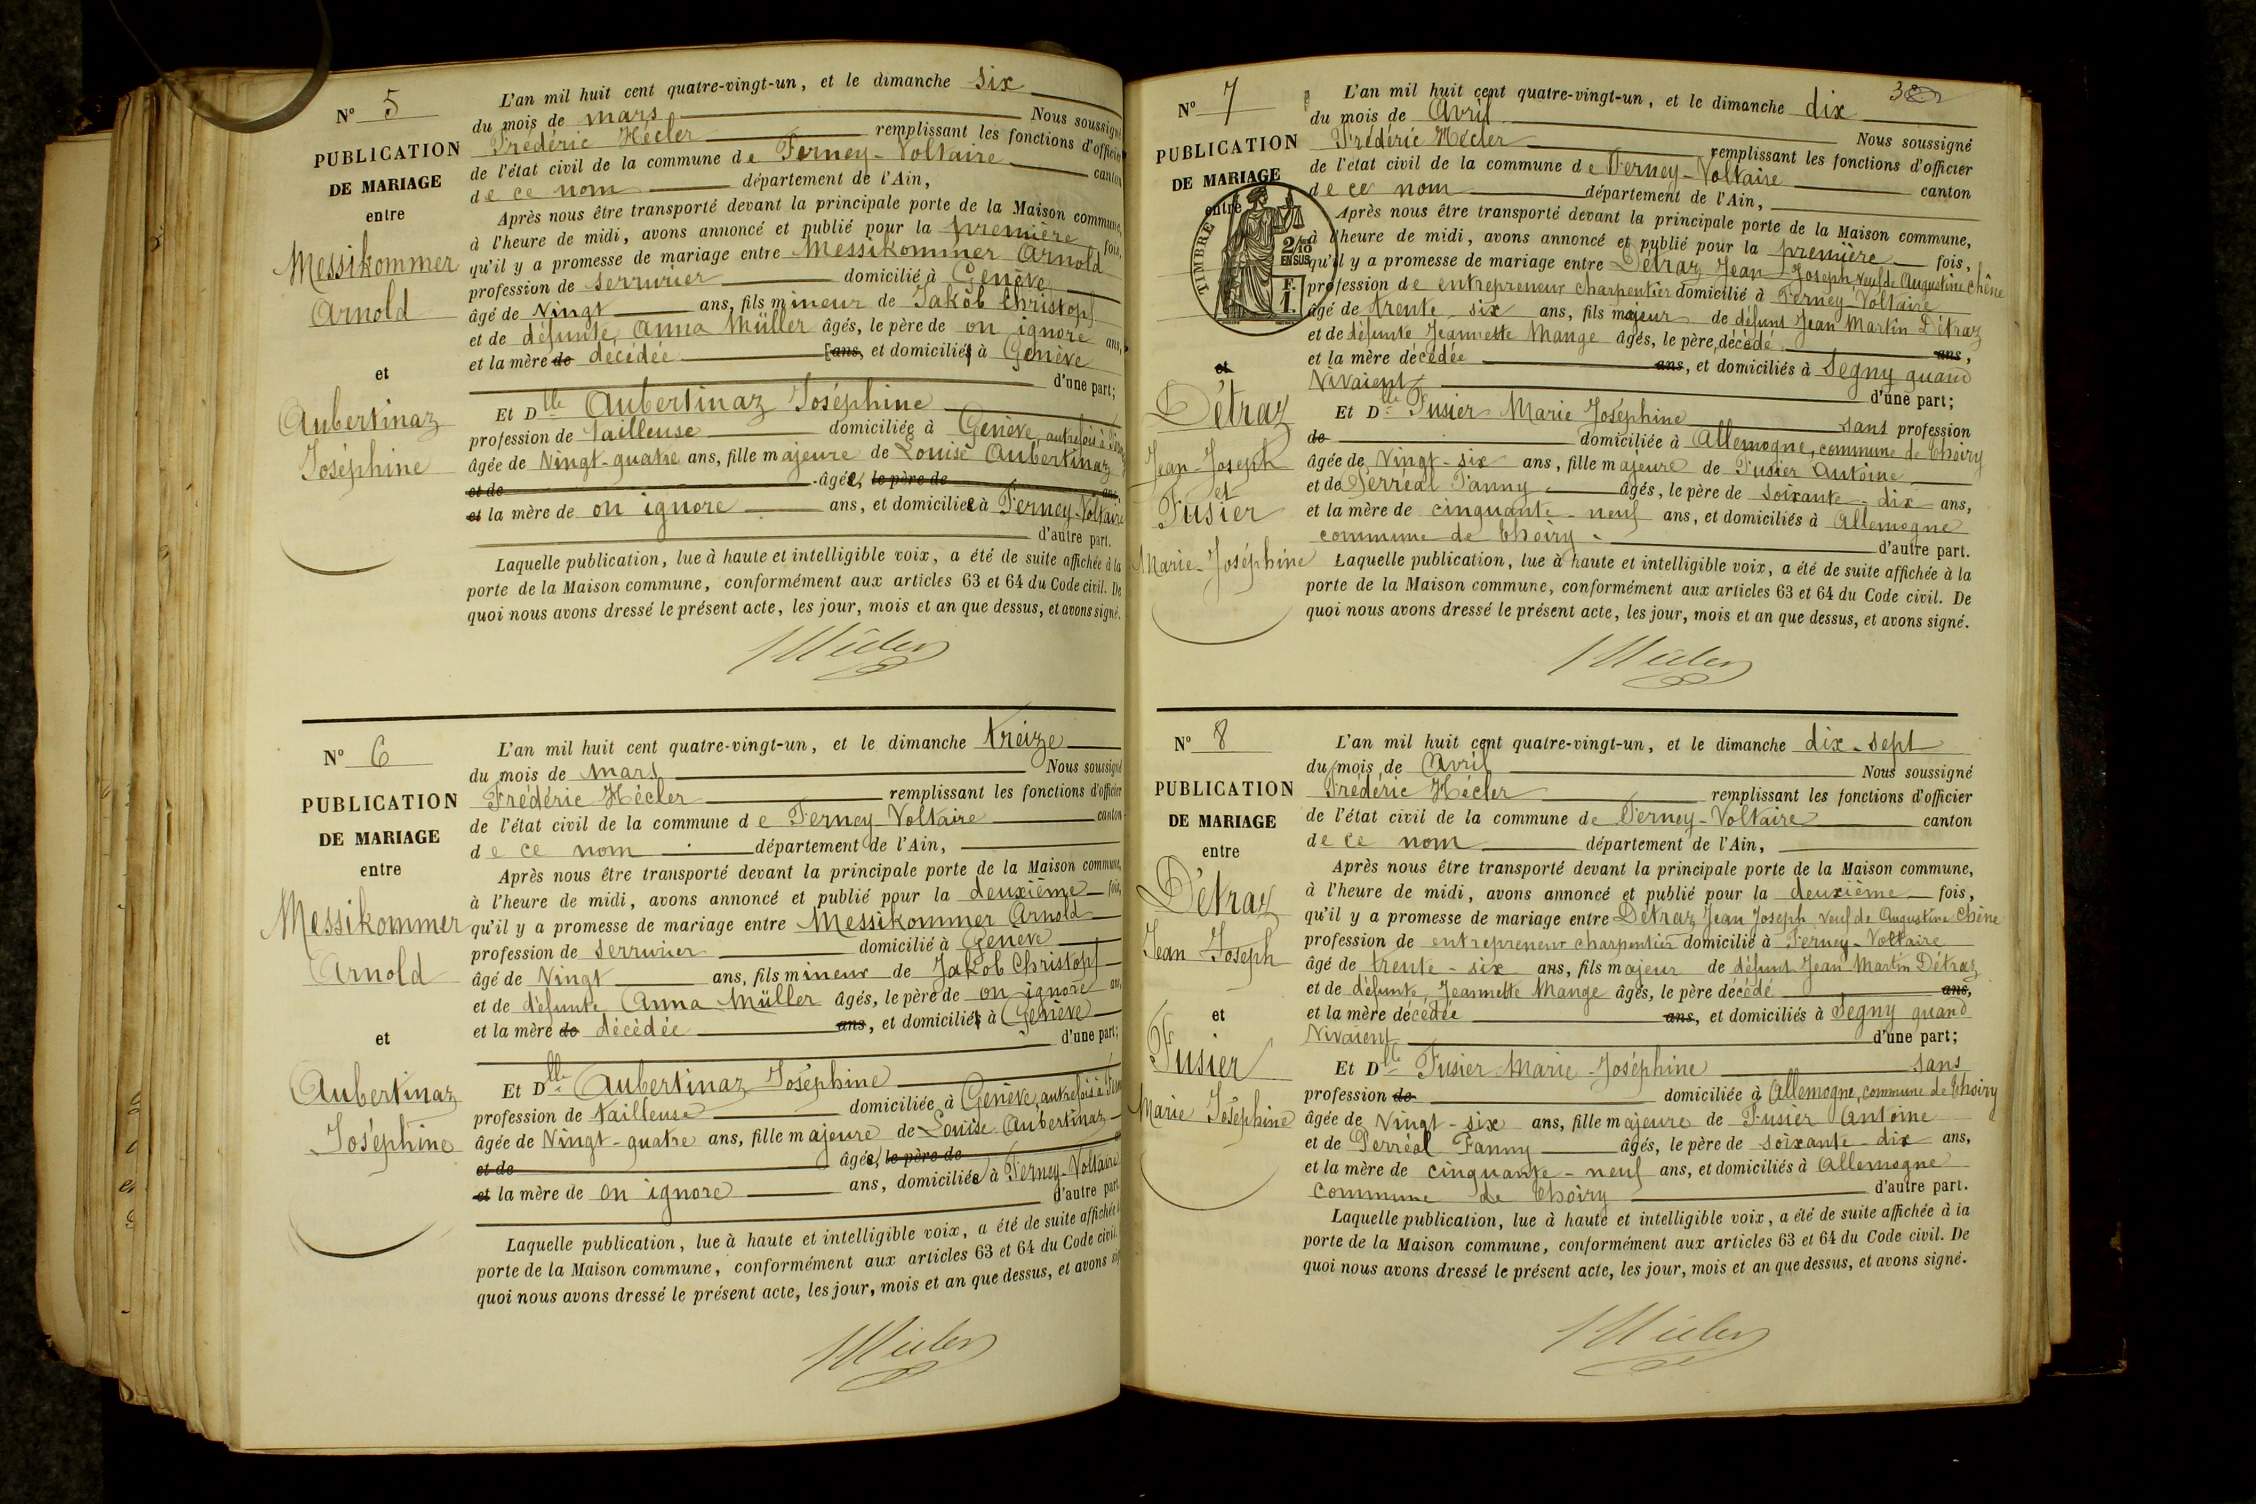 N° 5
PUBLICATION
DE MARIAGE
entre
Messikommer
Arnold
et
Aubertinaz
Joséphine
L'an mil huit cent quatre-vingt-un, et le dimanche six
du mois de mars Nous soussigné
Frédéric Hécler remplissant les fonctions d'officier
de l'état civil de la commune de Ferney-Voltaire canton
de ce nom département de l'Ain,
Après nous être transporté devant la principale porte de la Maison commune,
à l'heure de midi, avons annoncé et publié pour la première fois,
qu'il y a promesse de mariage entre Messikommer Arnold
profession de serrurier domicilié à Genève
âgé de Vingt ans, fils mineur de Jakob Christoph
et de défunte Anna Müller âgés, le père de on ignore ans,
et la mère de décédée ans, et domiciliés à Genève
d'une part;
Et Dlle Aubertinaz Joséphine
profession de tailleuse domiciliée à Genève, autrefois à
âgée de Vingt-quatre ans, fille majeure de Louise Aubertinaz
et de âgée, le père de ans,
et la mère de on ignore ans, et domiciliée à Ferney-Voltaire
d'autre part.
Laquelle publication, lue à haute et intelligible voix, a été de suite affichée à la
porte de la Maison commune, conformément aux articles 63 et 64 du Code civil. De
quoi nous avons dressé le présent acte, les jour, mois et an que dessus, et avons signé.
Hécler
N° 6
PUBLICATION
DE MARIAGE
entre
Messikommer
Arnold
et
Aubertinaz
Joséphine
L'an mil huit cent quatre-vingt-un, et le dimanche treize
du mois de mars Nous soussigné
Frédéric Hécler remplissant les fonctions d'officier
de l'état civil de la commune de Ferney Voltaire canton
de ce nom département de l'Ain,
Après nous être transporté devant la principale porte de la Maison commune,
à l'heure de midi, avons annoncé et publié pour la deuxième fois,
qu'il y a promesse de mariage entre Messikommer Arnold
profession de serrurier domicilié à Genève
âgé de Vingt ans, fils mineur de Jakob Christoph
et de défunte Anna Müller âgés, le père de on ignore ans,
et la mère de décédée ans, et domiciliés à Genève
d'une part;
Et Dlle Aubertinaz Joséphine
profession de tailleuse domiciliée à Genève, autrefois à
âgée de Vingt-quatre ans, fille majeure de Louise Aubertinaz
et de âgée, le père de
et la mère de on ignore ans, domiciliée à Ferney-Voltaire
d'autre part
Laquelle publication, lue à haute et intelligible voix, a été de suite affichée à
porte de la Maison commune, conformément aux articles 63 et 64 du Code civil.
quoi nous avons dressé le présent acte, les jour, mois et an que dessus, et avons
Hécler
N° 7
PUBLICATION
DE MARIAGE
entre
TIMBRE
2/10 EN SUS
F. 1.
et
Détraz
Jean-Joseph
et
Fusier
Marie-Joséphine
L'an mil huit cent quatre-vingt-un, et le dimanche dix
du mois de Avril Nous soussigné
Frédéric Hécler remplissant les fonctions d'officier
de l'état civil de la commune de Ferney-Voltaire canton
de ce nom département de l'Ain,
Après nous être transporté devant la principale porte de la Maison commune,
à l'heure de midi, avons annoncé et publié pour la première fois,
qu'il y a promesse de mariage entre Détraz Jean Joseph, veuf de Augustine Chêne
profession de entrepreneur charpentier domicilié à Ferney Voltaire
âgé de trente six ans, fils majeur de défunt Jean Martin Détraz
et de défunte Jeannette Mange âgés, le père décédé ans,
et la mère décédée ans, et domiciliés à Segny quand
Vivaient d'une part;
Et Dlle Fusier Marie Joséphine sans profession
de domiciliée à Allemogne, commune de Thoiry
âgée de Vingt-six ans, fille majeure de Fusier Antoine
et de Perréal Fanny âgés, le père de soixante-dix ans,
et la mère de cinquante-neuf ans, et domiciliés à Allemogne
commune de Thoiry d'autre part.
Laquelle publication, lue à haute et intelligible voix, a été de suite affichée à la
porte de la Maison commune, conformément aux articles 63 et 64 du Code civil. De
quoi nous avons dressé le présent acte, les jour, mois et an que dessus, et avons signé.
Hécler
N° 8
PUBLICATION
DE MARIAGE
entre
Détraz
Jean Joseph
et
Fusier
Marie Joséphine
L'an mil huit cent quatre-vingt-un, et le dimanche dix-sept
du mois de Avril Nous soussigné
Frédéric Hécler remplissant les fonctions d'officier
de l'état civil de la commune de Ferney-Voltaire canton
de ce nom département de l'Ain,
Après nous être transporté devant la principale porte de la Maison commune,
à l'heure de midi, avons annoncé et publié pour la deuxième fois,
qu'il y a promesse de mariage entre Détraz Jean Joseph veuf de Augustine Chêne
profession de entrepreneur charpentier domicilié à Ferney-Voltaire
âgé de trente-six ans, fils majeur de défunt Jean Martin Détraz
et de défunte Jeannette Mange âgés, le père décédé ans,
et la mère décédée ans, et domiciliés à Segny quand
Vivaient d'une part;
Et Dlle Fusier Marie-Joséphine sans
profession de domiciliée à Allemogne, commune de Thoiry
âgée de Vingt-six ans, fille majeure de Fusier Antoine
et de Perréal Fanny âgés, le père de soixante-dix ans,
et la mère de cinquante-neuf ans, et domiciliés à Allemogne
commune de Thoiry d'autre part.
Laquelle publication, lue à haute et intelligible voix, a été de suite affichée à la
porte de la Maison commune, conformément aux articles 63 et 64 du Code civil. De
quoi nous avons dressé le présent acte, les jour, mois et an que dessus, et avons signé.
Hécler